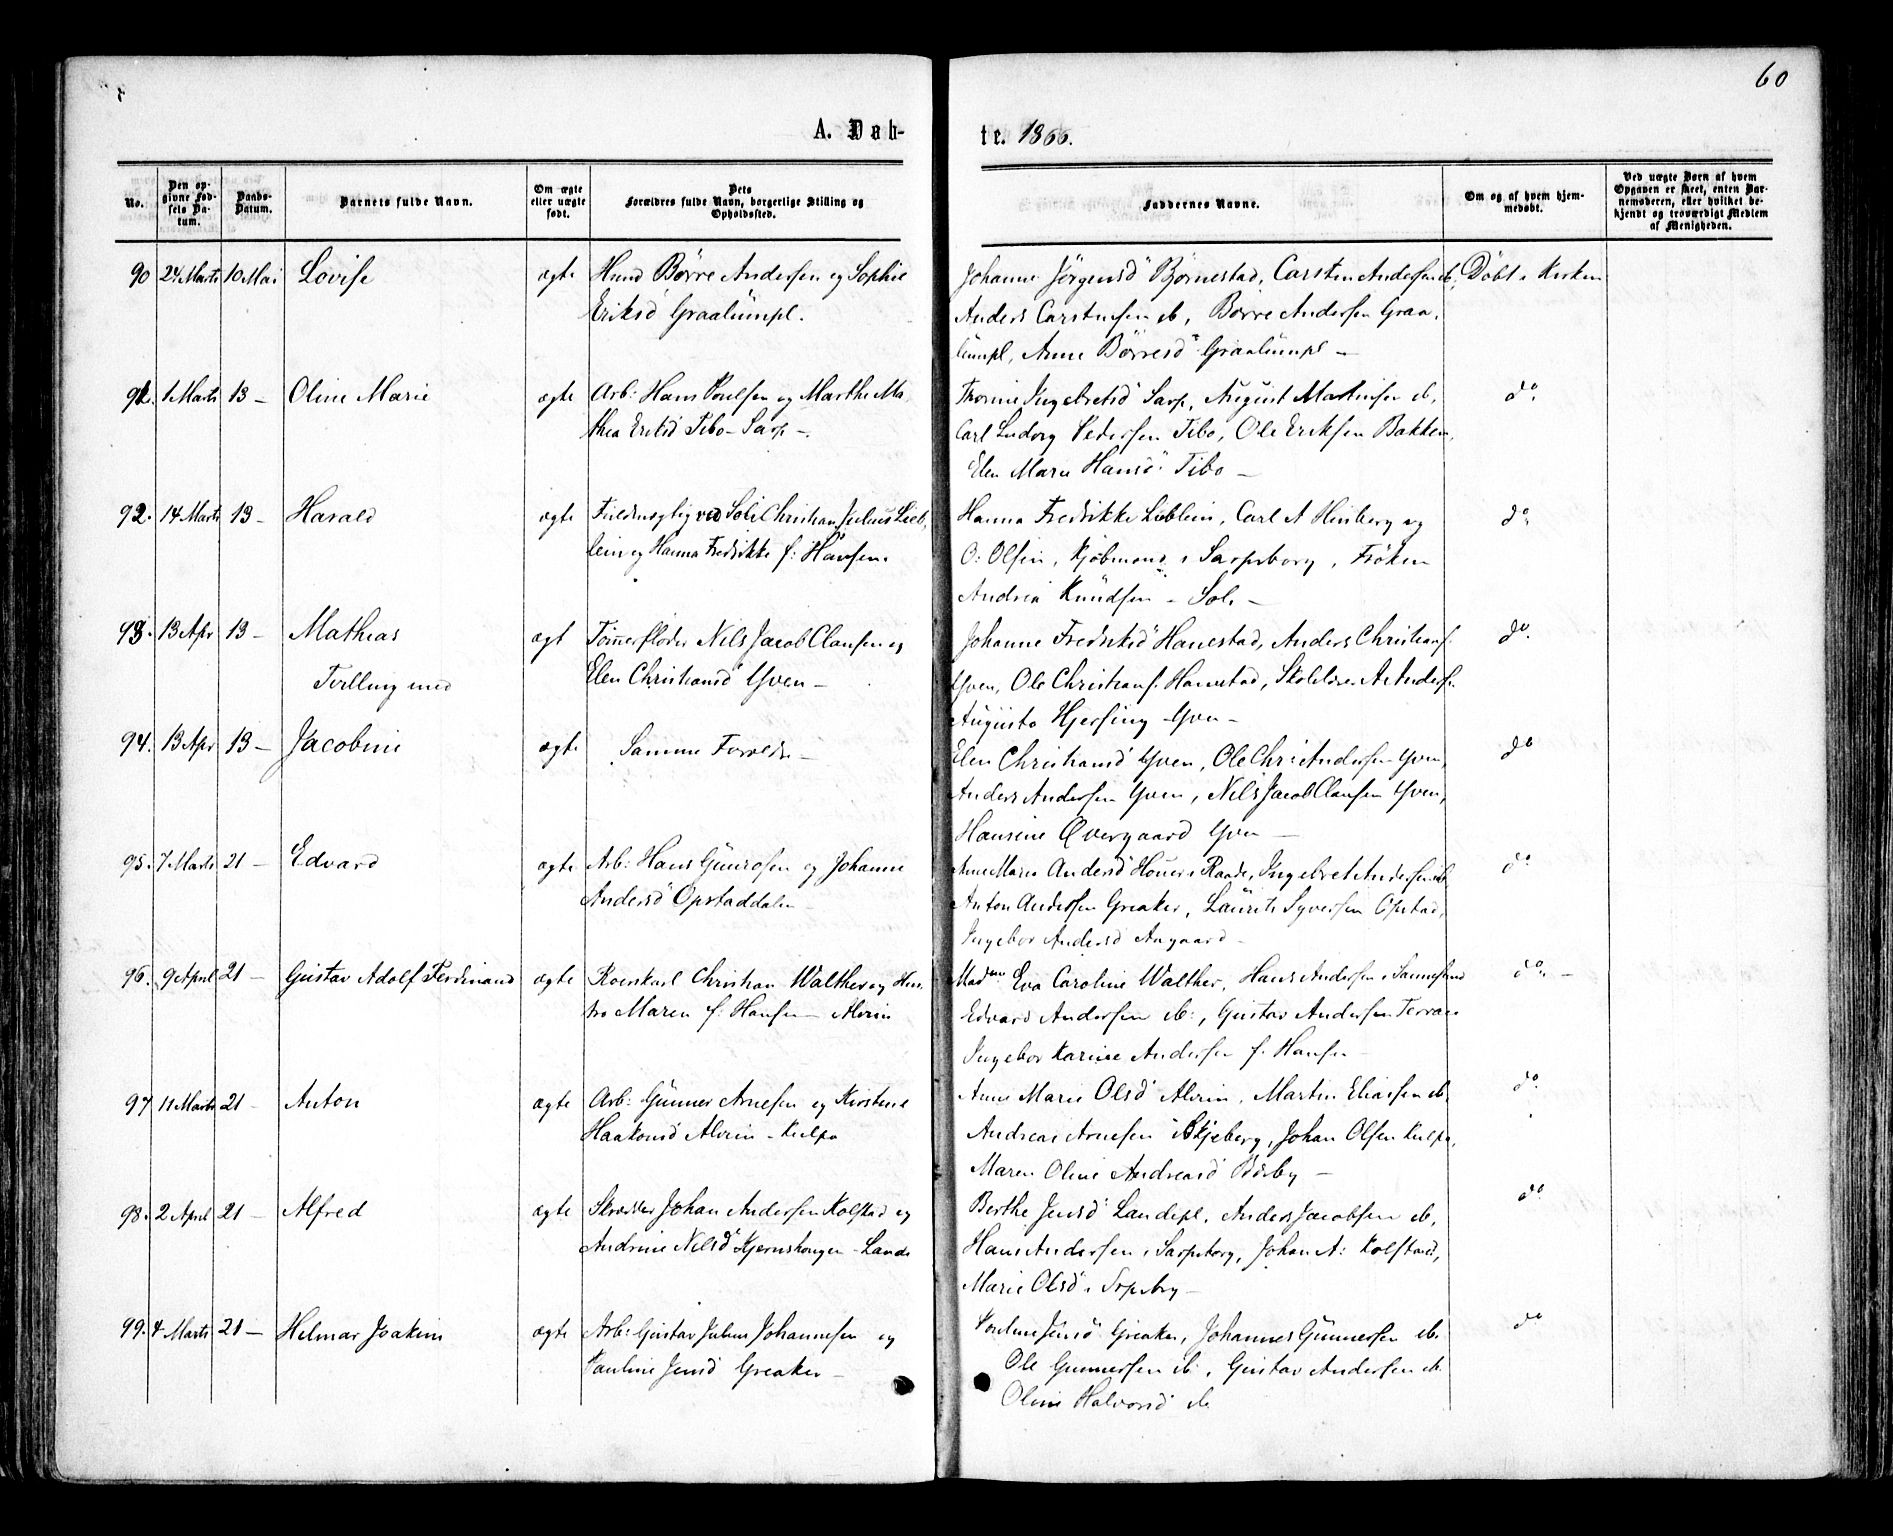 60
A. Døb-
te. 1866.
No.
Den op-
givne Fød-
sels Da-
tum.
Daabs-
Datum.
Barnets fulde Navn.
Om ægte
eller uægte
født.
Dets
Forældres fulde Navn, borgerlige Stilling og
Opholdssted.
Faddernes Navne.
Om og af hvem hjem-
medøbt.
Ved uægte Børn af hvem
Opgaven er skeet, enten Bar-
nemoderen, eller hvilket be-
kjendt og troværdigt Medlem
af Menigheden.
90 24 Marts 10 Mai Lovise ægte Husmd Børre Andersen og Sophie
Eriksd Graalumpl.
Johanne Jørgensd Bjørnestad, Carsten Andersen ib,
Anders Carstensen ib, Børre Andersen Graa-
lumpl, Anne Børresd Graalumpl –
Døbt i Kirken
91. 1 Marts 13 – Oline Marie ægte Arb: Hans Poulsen og Marthe Ma-
thea Eriksd Tibo – Sarp –.
Ingebretsd Sarp, August Martinsen ib,
Carl Ludvig Pedersen Tibo, Ole Eriksen Bakken,
Elen Marie Hansd Tibo –
do.
92. 14 Marts 13 – Harald ægte Fuldmægtig ved Soli Christian Julius Lieb-
lein og Hanna Fredrikke f: Hansen.
Hanna Fredrikke Lieblein, Carl A Hesberg og
O: Olsen, Kjøbmænd i Sarpsborg, Frøken
Andrea Knudsen – Soli –
do.
93. 13 Apr 13 – Mathias ægt Tømmerfløder Nils Jacob Clausen og
Tvilling med
Elen Christiansd Yven –
Johanne Fredrikd Hanestad, Anders Christians.
Yven, Ole Christians. Hanestad, Skolelærer A Anders.
Augusta Hjersing Yven –
do.
94. 13 Apr 13 – Jacobine ægte Samme Forældre –
Elen Christiansd Yven, Ole Chr: Andersen Yven,
Anders Andersen Yven, Nils Jacob Clausen Yven,
Hansine Overgaard Yven –
do
95. 7 Marts 21 – Edvard ægte Arb: Hans Gunrosen og Johanne
Andersd Opstaddalen –
Anne Marie Andersd Houer i Raade, Ingebret Andersen ib
Anton Andersen Greaker, Laurits Syversen Opstad,
Ingebor Andersd Aagaard –
do
96. 9 April 21 – Gustav Adolf Ferdinand ægte Christian Walther og Hus-
tro Maren f: Hansen – Alvim
Madme Eva Caroline Walther, Hans Andersen i Sannesund
Edvard Andersen ib:, Gustav Andersen
Ingebor Karine Andersen f. Hansen –
do. –
97 11 Marts 21 – Anton ægte Arb: Gunner Arnesen og Kirstine
Haakonsd Alvim – Kulpa
Anne Marie Olsd Alvim, Martin Eliassen ib,
Andreas Arnesen i Skjeberg, Johan Olsen Kulpa,
Maren Oline Andreasd –
do.
98. 2 April 21 – Alfred ægte Skrædder Johan Andersen Kolstad og
Andrine Nilsd Kjernshaugen – Lande
Berthe Jensd Landepl, Anders Jacobsen ib,
Hans Andersen i Sarpsborg, Johan A: Kolstad,
Marie Olsd i Srpsbrg –
do
99. 4 Marts 21 – Helmar Joakim ægte Arb: Gustav Julius Johannesen og
Pauline Jensd Greaker –
Pouline Jensd Greaker, Johannes Gunnersen ib.
Ole Gunnersen ib:, Gustav Andersen ib
Oline Halvorsd ib
do